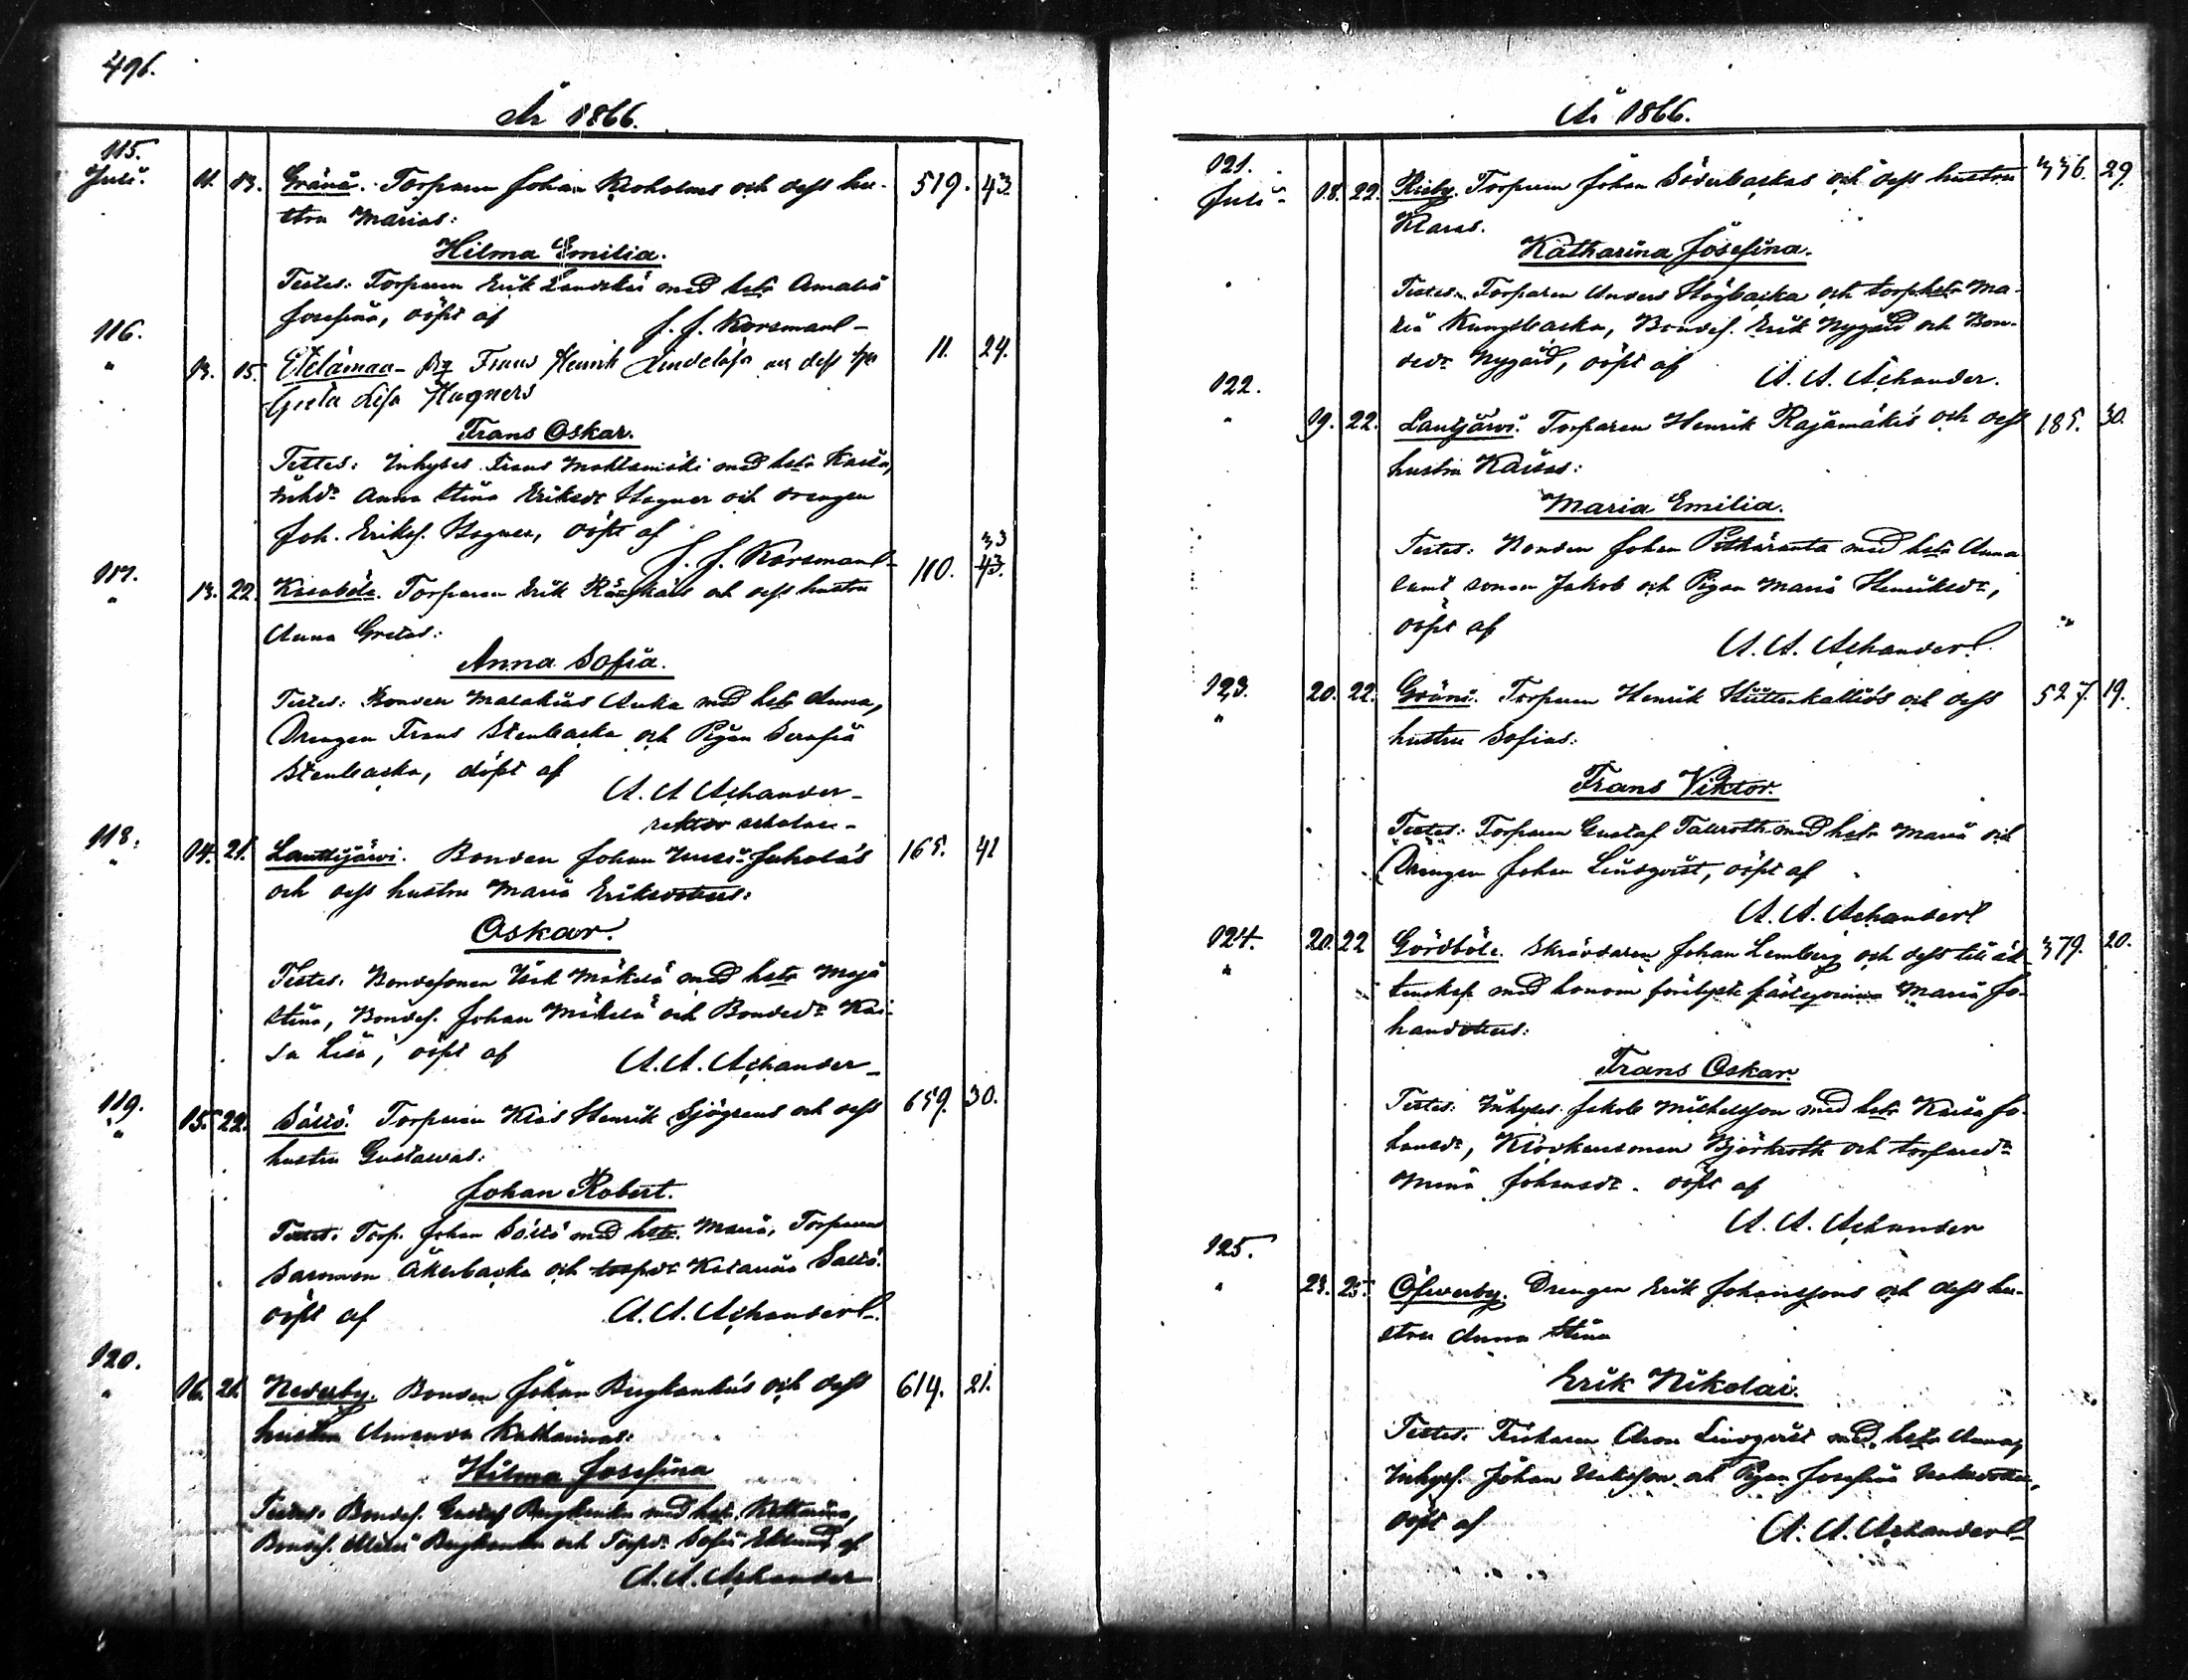 496.
År 1866.
115.
Juli. 11. 13. Gränö. Torparen Johan Kroholms och dess hu- 519. 43.
stru Marias:
Hilma Emilia.
Testes: Torparen Erik med hstr Amalia
Josefina, döpt af J. J. Korsman
116.
" 13. 15. Etelämaa Frans Henrik Lindelöfs och dess 11. 24.
Greta Lisa Hagners
Frans Oskar.
Testes: Inhyses Frans med hstr Kaisa,
Anna Stina Eriksdr Hagner och drengen
Joh. Eriks. Hagner, döpt af
J. J. Korsman
33
117.
" 13. 22. Torparen Erik och dess hustru 110. 43.
Anna Gretas:
Anna Sofia.
Testes: Bonden Malakias Anka med hstr Anna,
Drengen Frans Stenbacka och Pigan Serafia
Stenbacka, döpt af
A. A. Achander
rektor scholae
118.
" 14. 21. Lauttijärvi. Bonden Johan Juhola's 165. 41
och dess hustru Maria Eriksdotters:
Oskar.
Testes. Bondesonen Isak Mäkelä med hstr Maja
Stina, Bondes. Johan Mäkelä och Bondedr Kai-
sa Lisa, döpt af A. A. Achander
119.
" 15. 22. Torparen Klas Henrik Sjögrens och dess 659. 30.
hustru Gustavas:
Johan Robert.
Testes. Torp. Johan med hstr. Maria, Torparen
Salomon Åkerbacka och torpdr Katarina
döpt af A. A. Achander
120.
" 16. 21. Nederby. Bonden Johan Bergkankas och dess 614. 21.
hustru Amanda Katharinas:
Hilma Josefina
Testes. Bondes. Gustaf Bergkanka med hstr. Katharina,
Bondes. Bergkanka och Torpdr Sofia Eklund, af
A. A. Achander
År 1866.
121.
Juli 18. 22. Risby. Torparen Johan Söderbackas och dess hustru 336. 29.
Klaras.
Katharina Josefina.
Testes. Torparen Anders Högbacka och torphstr Ma-
ria Kungsbacka, Bondes. Erik Nygård och Bon-
dedr Nygård, döpt af A. A. Achander.
122.
" 19. 22. Lautjärvi. Torparen Henrik Rajamäkis och dess 185. 30.
hustru Kaisas:
Maria Emilia.
Testes: Bonden Johan Pitkäranta med hstr Anna
samt sonen Jakob och Pigan Maria Henriksdr,
döpt af
A. A. Achander
123.
" 20. 22. Gränö. Torparen Henrik Hiittenkallios och dess 527. 19.
hustru Sofias:
Frans Viktor.
Testes: Torparen Gustaf Tallroth med hstr Maria och
Drengen Johan Lindqvist, döpt af
A. A. Achander
124.
" 20. 22 Gördböle. Skräddaren Johan Lemberg och dess till äk- 379. 20.
tenskap med honom Maria Jo-
hansdotters:
Frans Oskar.
Testes: Inhyses Jakob Michelsson med hstr Kaisa Jo-
hansdr, Klockaresonen Björkroth och torparedr
Mina Johansdr. döpt af
A. A. Achander
125.
" 23. 25. Öfverby. Drengen Erik Johanssons och dess hu-
stru Anna Stina
Erik Nikolai.
Testes. Fiskaren Aron Lindqvist med hstr Anna,
Inhyses. Johan Isaksson och Pigan Josefina Isaksdotter,
döpt af A. A. Achander